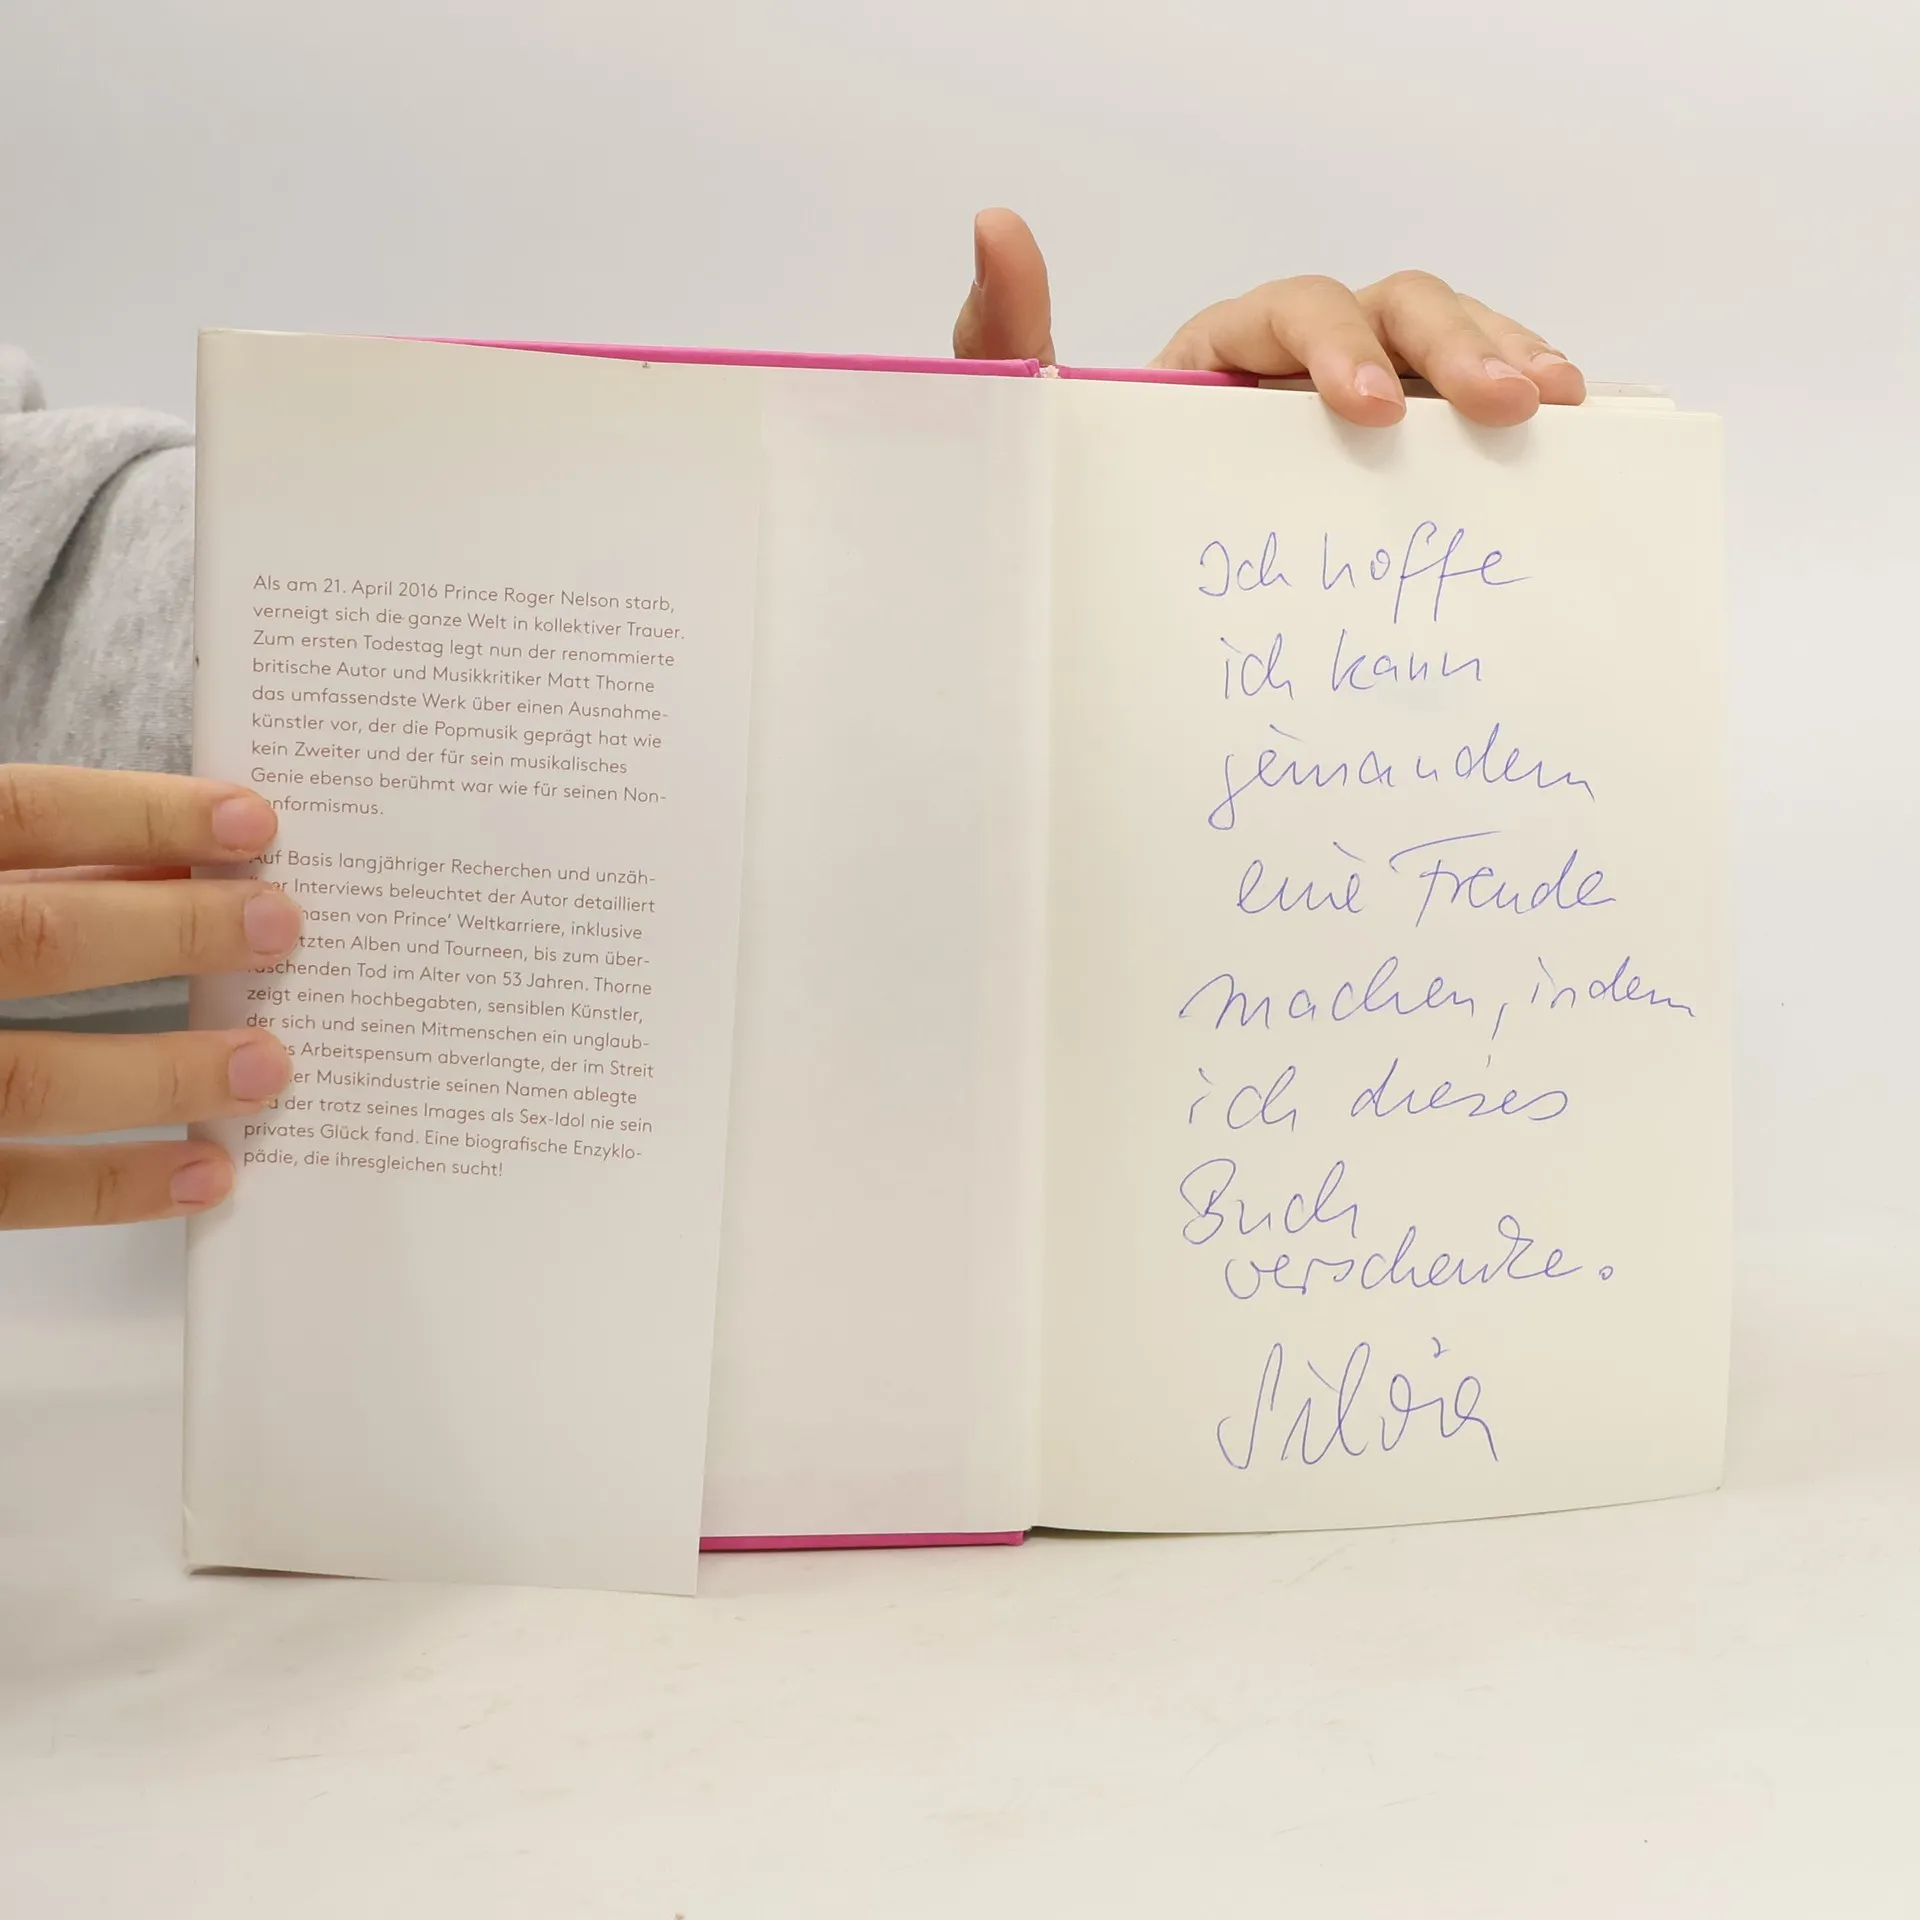 Als am 21. April 2016 Prince Roger Nelson starb,
verneigt sich die ganze Welt in kollektiver Trauer.
Zum ersten Todestag legt nun der renommierte
britische Autor und Musikkritiker Matt Thorne
das umfassendste Werk über einen Ausnahme-
künstler vor, der die Popmusik geprägt hat wie
kein Zweiter und der für sein musikalisches
Genie ebenso berühmt war wie für seinen Non-
onformismus.
Auf Basis langjähriger Recherchen und unzäh-
Interviews beleuchtet der Autor detailliert
hasen von Prince’ Weltkarriere, inklusive
tzten Alben und Tourneen, bis zum über-
raschenden Tod im Alter von 53 Jahren. Thorne
zeigt einen hochbegabten, sensiblen Künstler,
der sich und seinen Mitmenschen ein unglaub-
s Arbeitspensum abverlangte, der im Streit
er Musikindustrie seinen Namen ablegte
d der trotz seines Images als Sex-Idol nie sein
privates Glück fand. Eine biografische Enzyklo-
pädie, die ihresgleichen sucht!
Ich hoffe
ich kann
jemandem
eine Freude
machen, indem
ich dieses
Buch
verschenke.
Silvia